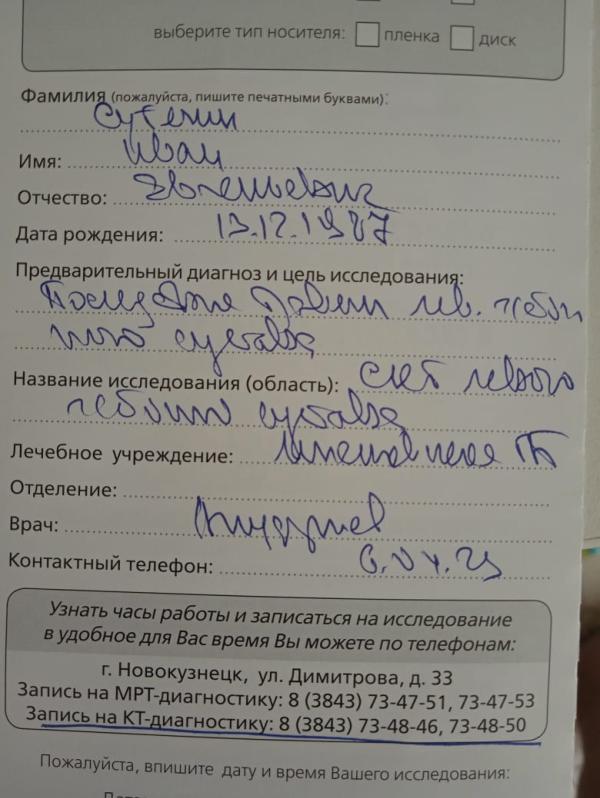 выберите тип носителя: пленка диск
Фамилия (пожалуйста, пишите печатными буквами):
Имя: Иван
Отчество: Евгеньевич
Дата рождения: 13.12.1987
Предварительный диагноз и цель исследования:
лев.
сустава
Название исследования (область): левого
сустава
Лечебное учреждение: ГБ
Отделение:
Врач:
Контактный телефон:
Узнать часы работы и записаться на исследование
в удобное для Вас время Вы можете по телефонам:
г. Новокузнецк, ул. Димитрова, д. 33
Запись на МРТ-диагностику: 8 (3843) 73-47-51, 73-47-53
Запись на КТ-диагностику: 8 (3843) 73-48-46, 73-48-50
Пожалуйста, впишите дату и время Вашего исследования: